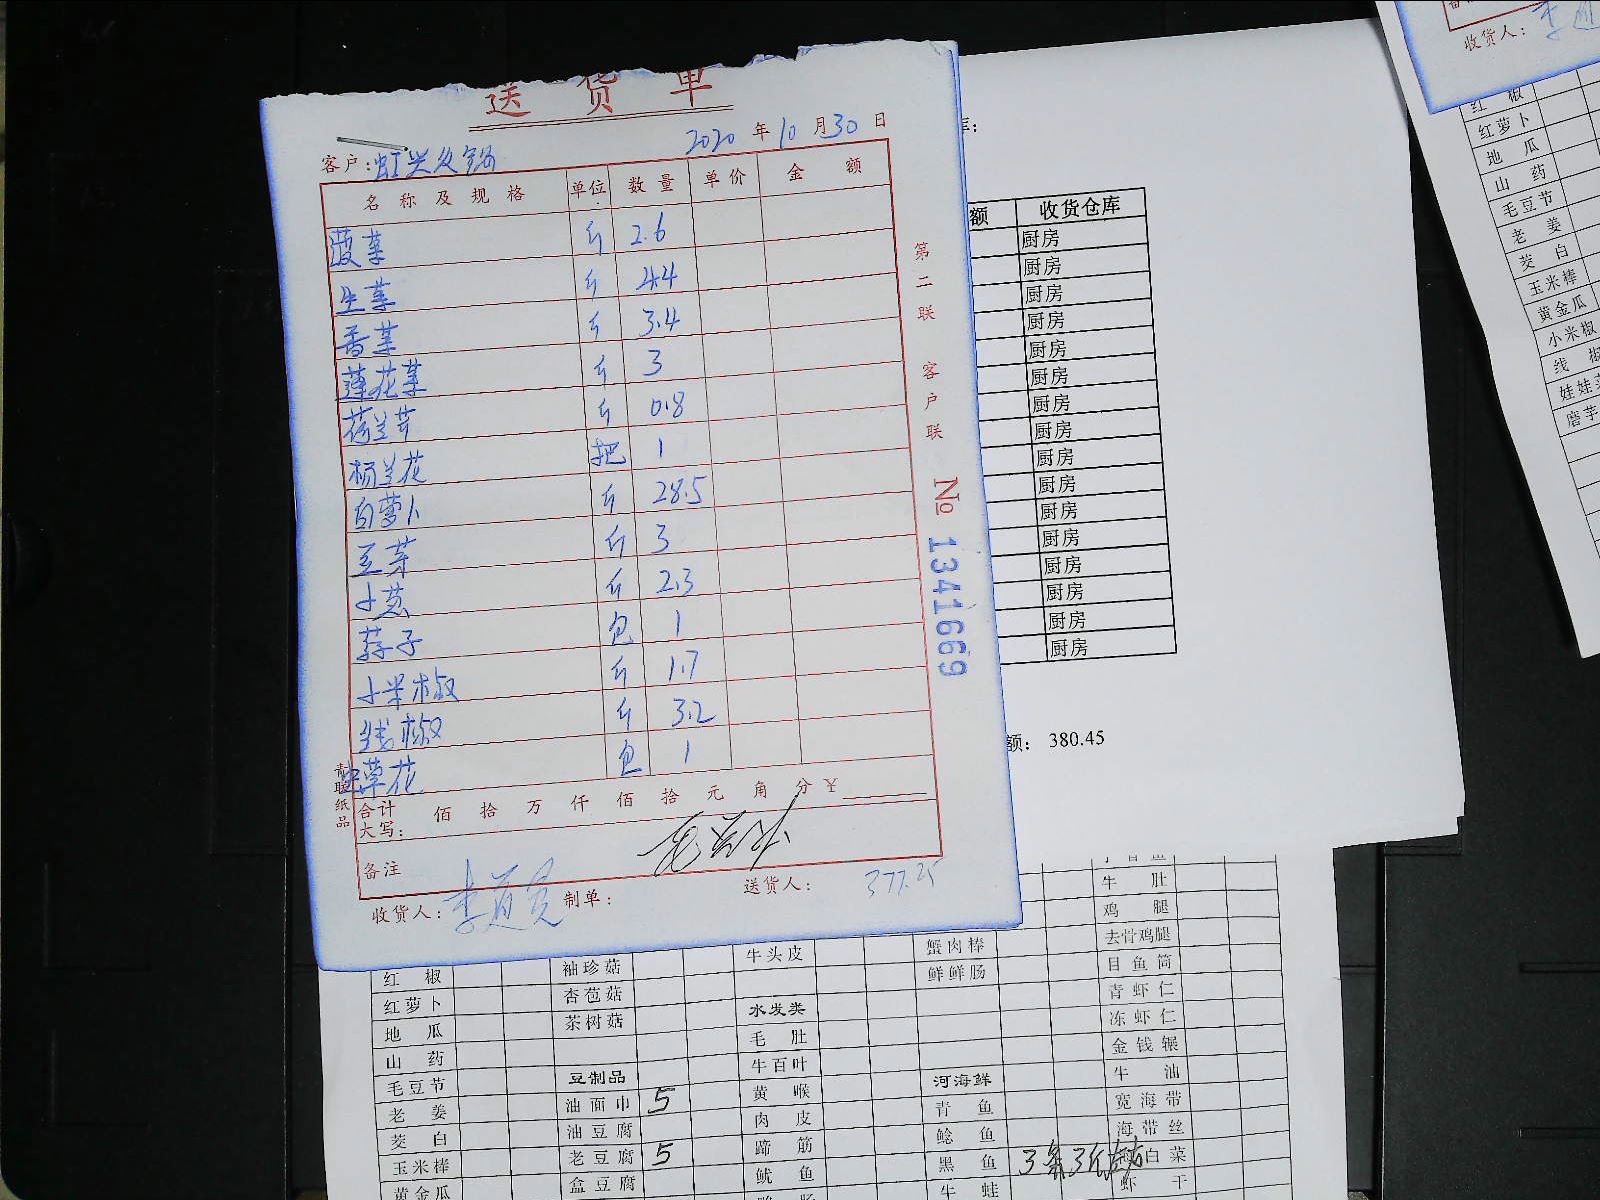 送货单
2020年10月30日
客户:虹兴火锅
名称及规格 单位 数量 单价 金额
菠菜 斤 2.6
生菜 斤 4.4
香菜 斤 3.4
莲花菜 斤 3
荷兰芹 斤 0.8
杨兰花 把 1
白萝卜 斤 28.5
豆芽 斤 3
小葱 斤 2.3
荪子 包 1
小米椒 斤 1.7
线椒 斤 3.2
草花 包 1
合计大写: 佰 拾 万 仟 佰 拾 元 角 分 ¥
备注
收货人: 制单: 送货人: 377.25
第二联 客户联
№ 1341669
青联纸品
库:
额 收货仓库
厨房
厨房
厨房
厨房
厨房
厨房
厨房
厨房
厨房
厨房
厨房
厨房
厨房
厨房
厨房
厨房
额: 380.45
收货人:
红椒
红萝卜
地瓜
山药
毛豆节
老姜
茭白
玉米棒
黄金瓜
小米椒
线椒
娃娃菜
磨芋
牛肚
鸡腿
牛头皮 蟹肉棒 去骨鸡腿
红椒 袖珍菇 鲜鲜肠 目鱼筒
红萝卜 杏苞菇 水发类 青虾仁
地瓜 茶树菇 毛肚 冻虾仁
山药 牛百叶 金钱辗
毛豆节 豆制品 黄喉 河海鲜 牛油
老姜 油面巾 5 肉皮 青鱼 宽海带
茭白 油豆腐 蹄筋 鲶鱼 海带丝
玉米棒 老豆腐 5 鱿鱼 黑鱼 3条3斤左右 白菜
黄金瓜 盒豆腐 牛蛙 虾干